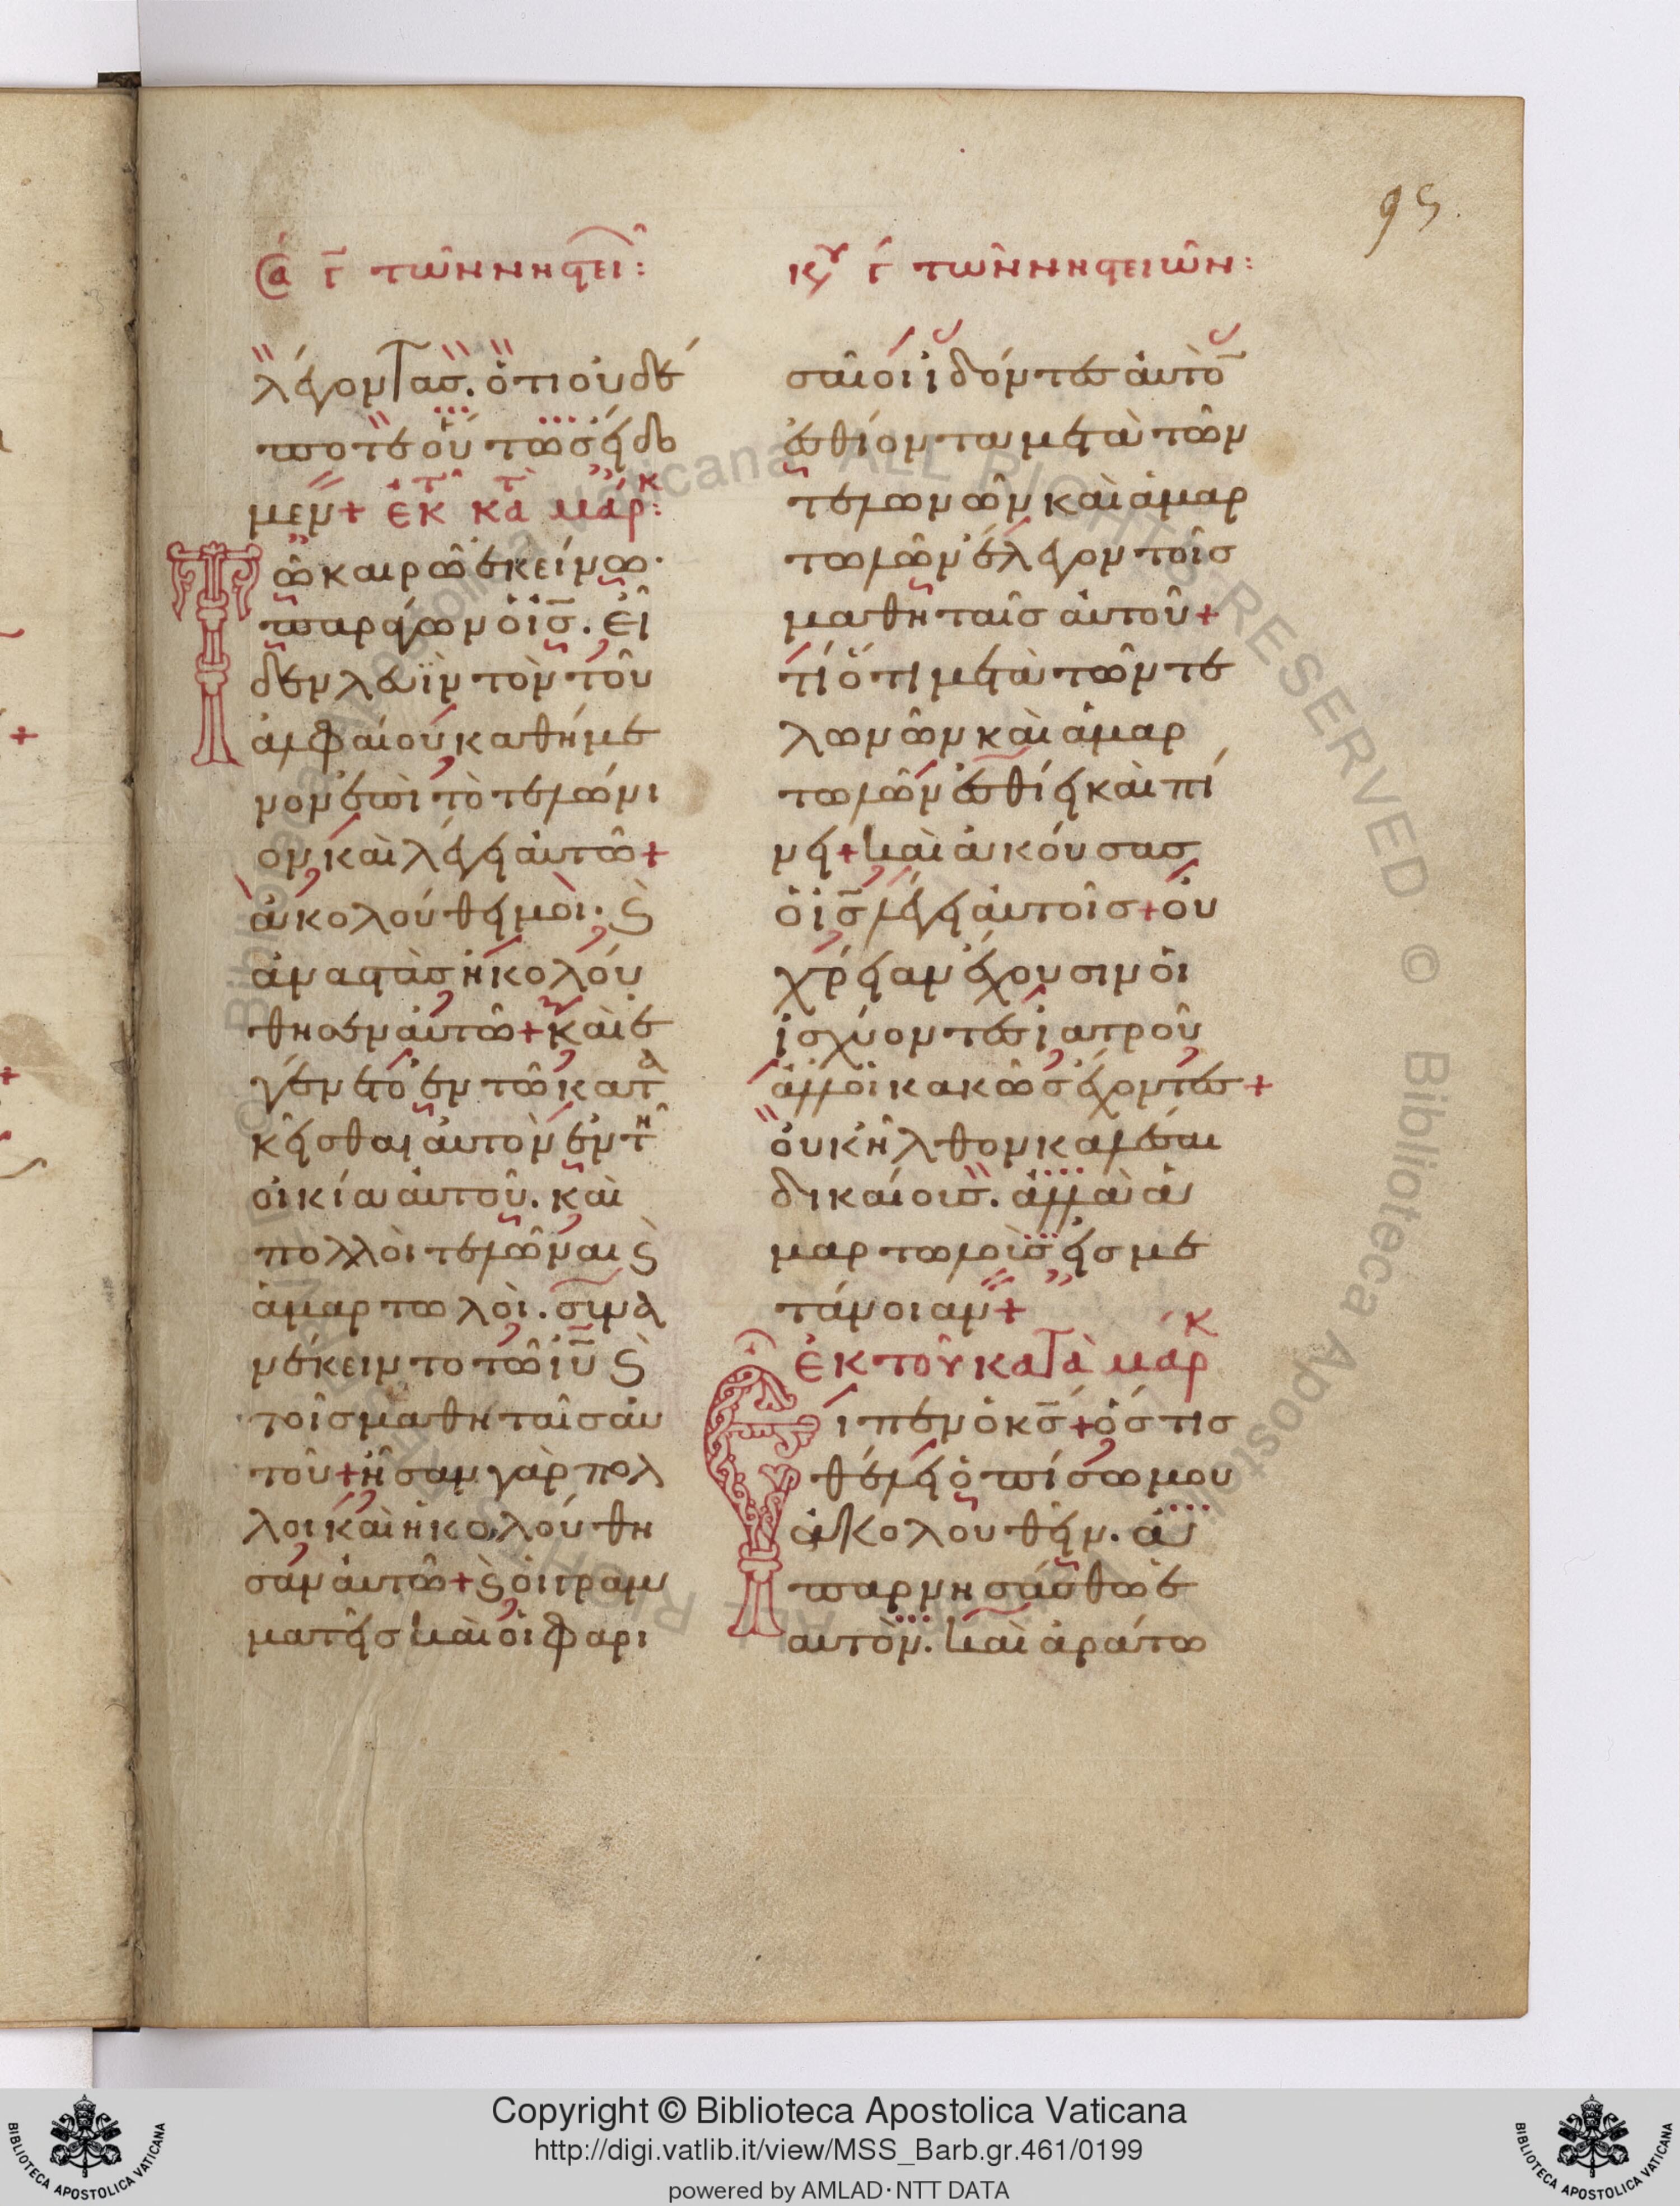 95.
Σά Γ τῶν νηστει:
λέγοντας. ὅτι οὐδέ
ποτε οὕτως εἴδο
μεν + ἐκ τοῦ κατὰ Μάρκ:
Τῶ καιρῶ ἐκείνω·
παράγων ὁ ις. εἶ
δεν λευῒν τὸν τοῦ
ἀλφαίου καθήμε
νον ἐπὶ τὸ τελώνι
ον, καὶ λέγει αὐτῶ +
ἀκολούθει μοι· ϗ
ἀναστὰς ἠκολού
θησεν αὐτῶ + καὶ ἐ
γένετο ἐν τῶ κατα
κεῖσθαι αὐτὸν ἐν τῆ
οἰκία αὐτοῦ. καὶ
πολλοὶ τελῶναι ϗ
ἁμαρτωλοὶ. συνα
νέκειντο τῶ ιυ ϗ
τοῖς μαθηταῖς αὐ
τοῦ + ἦσαν γὰρ πολ
λοι καὶ ἠκολούθη
σαν αὐτῶ + ϗ οἱ γραμ
ματεῖς καὶ οἱ φαρι
Κυ Γ τῶν νηστειῶν:
σαῖοι ἰδόντες αὐτὸ
ἐσθίοντα μετὰ τῶν
τελωνῶν καὶ ἁμαρ
τωλῶν ἔλεγον τοῖς
μαθηταῖς αὐτοῦ +
τί ὅτι μετὰ τῶν τε
λωνῶν καὶ ἁμαρ
τωλῶν ἐσθίει καὶ πί
νει + καὶ ἀκούσας
ὁ ις λέγει αὐτοῖς + οὐ
χρείαν ἔχουσιν οἱ
ἰσχύοντες ἰατροῦ
ἀλλ οἱ κακῶς ἔχοντες +
οὐκ ἦλθον καλέσαι
δικαίους. ἀλλὰ ἁ
μαρτωλοὺς εἰς με
τάνοιαν +
ἐκ τοῦ κατὰ Μάρκ
Εἶπεν ὁ κς + ὅστις
θέλει ὀπίσω μου
ἀκολουθεῖν. ἀ
παρνησάσθω ἑ
αυτὸν. καὶ ἀράτω
Copyright © Biblioteca Apostolica Vaticana
http://digi.vatlib.it/view/MSS_Barb.gr.461/0199
powered by AMLAD·NTT DATA